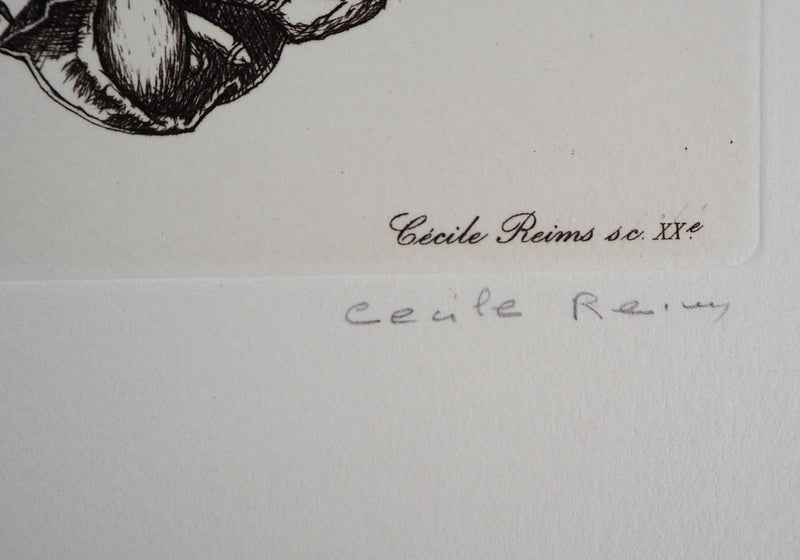 Cécile Reims sc. XXᵉ
Cecile Reims